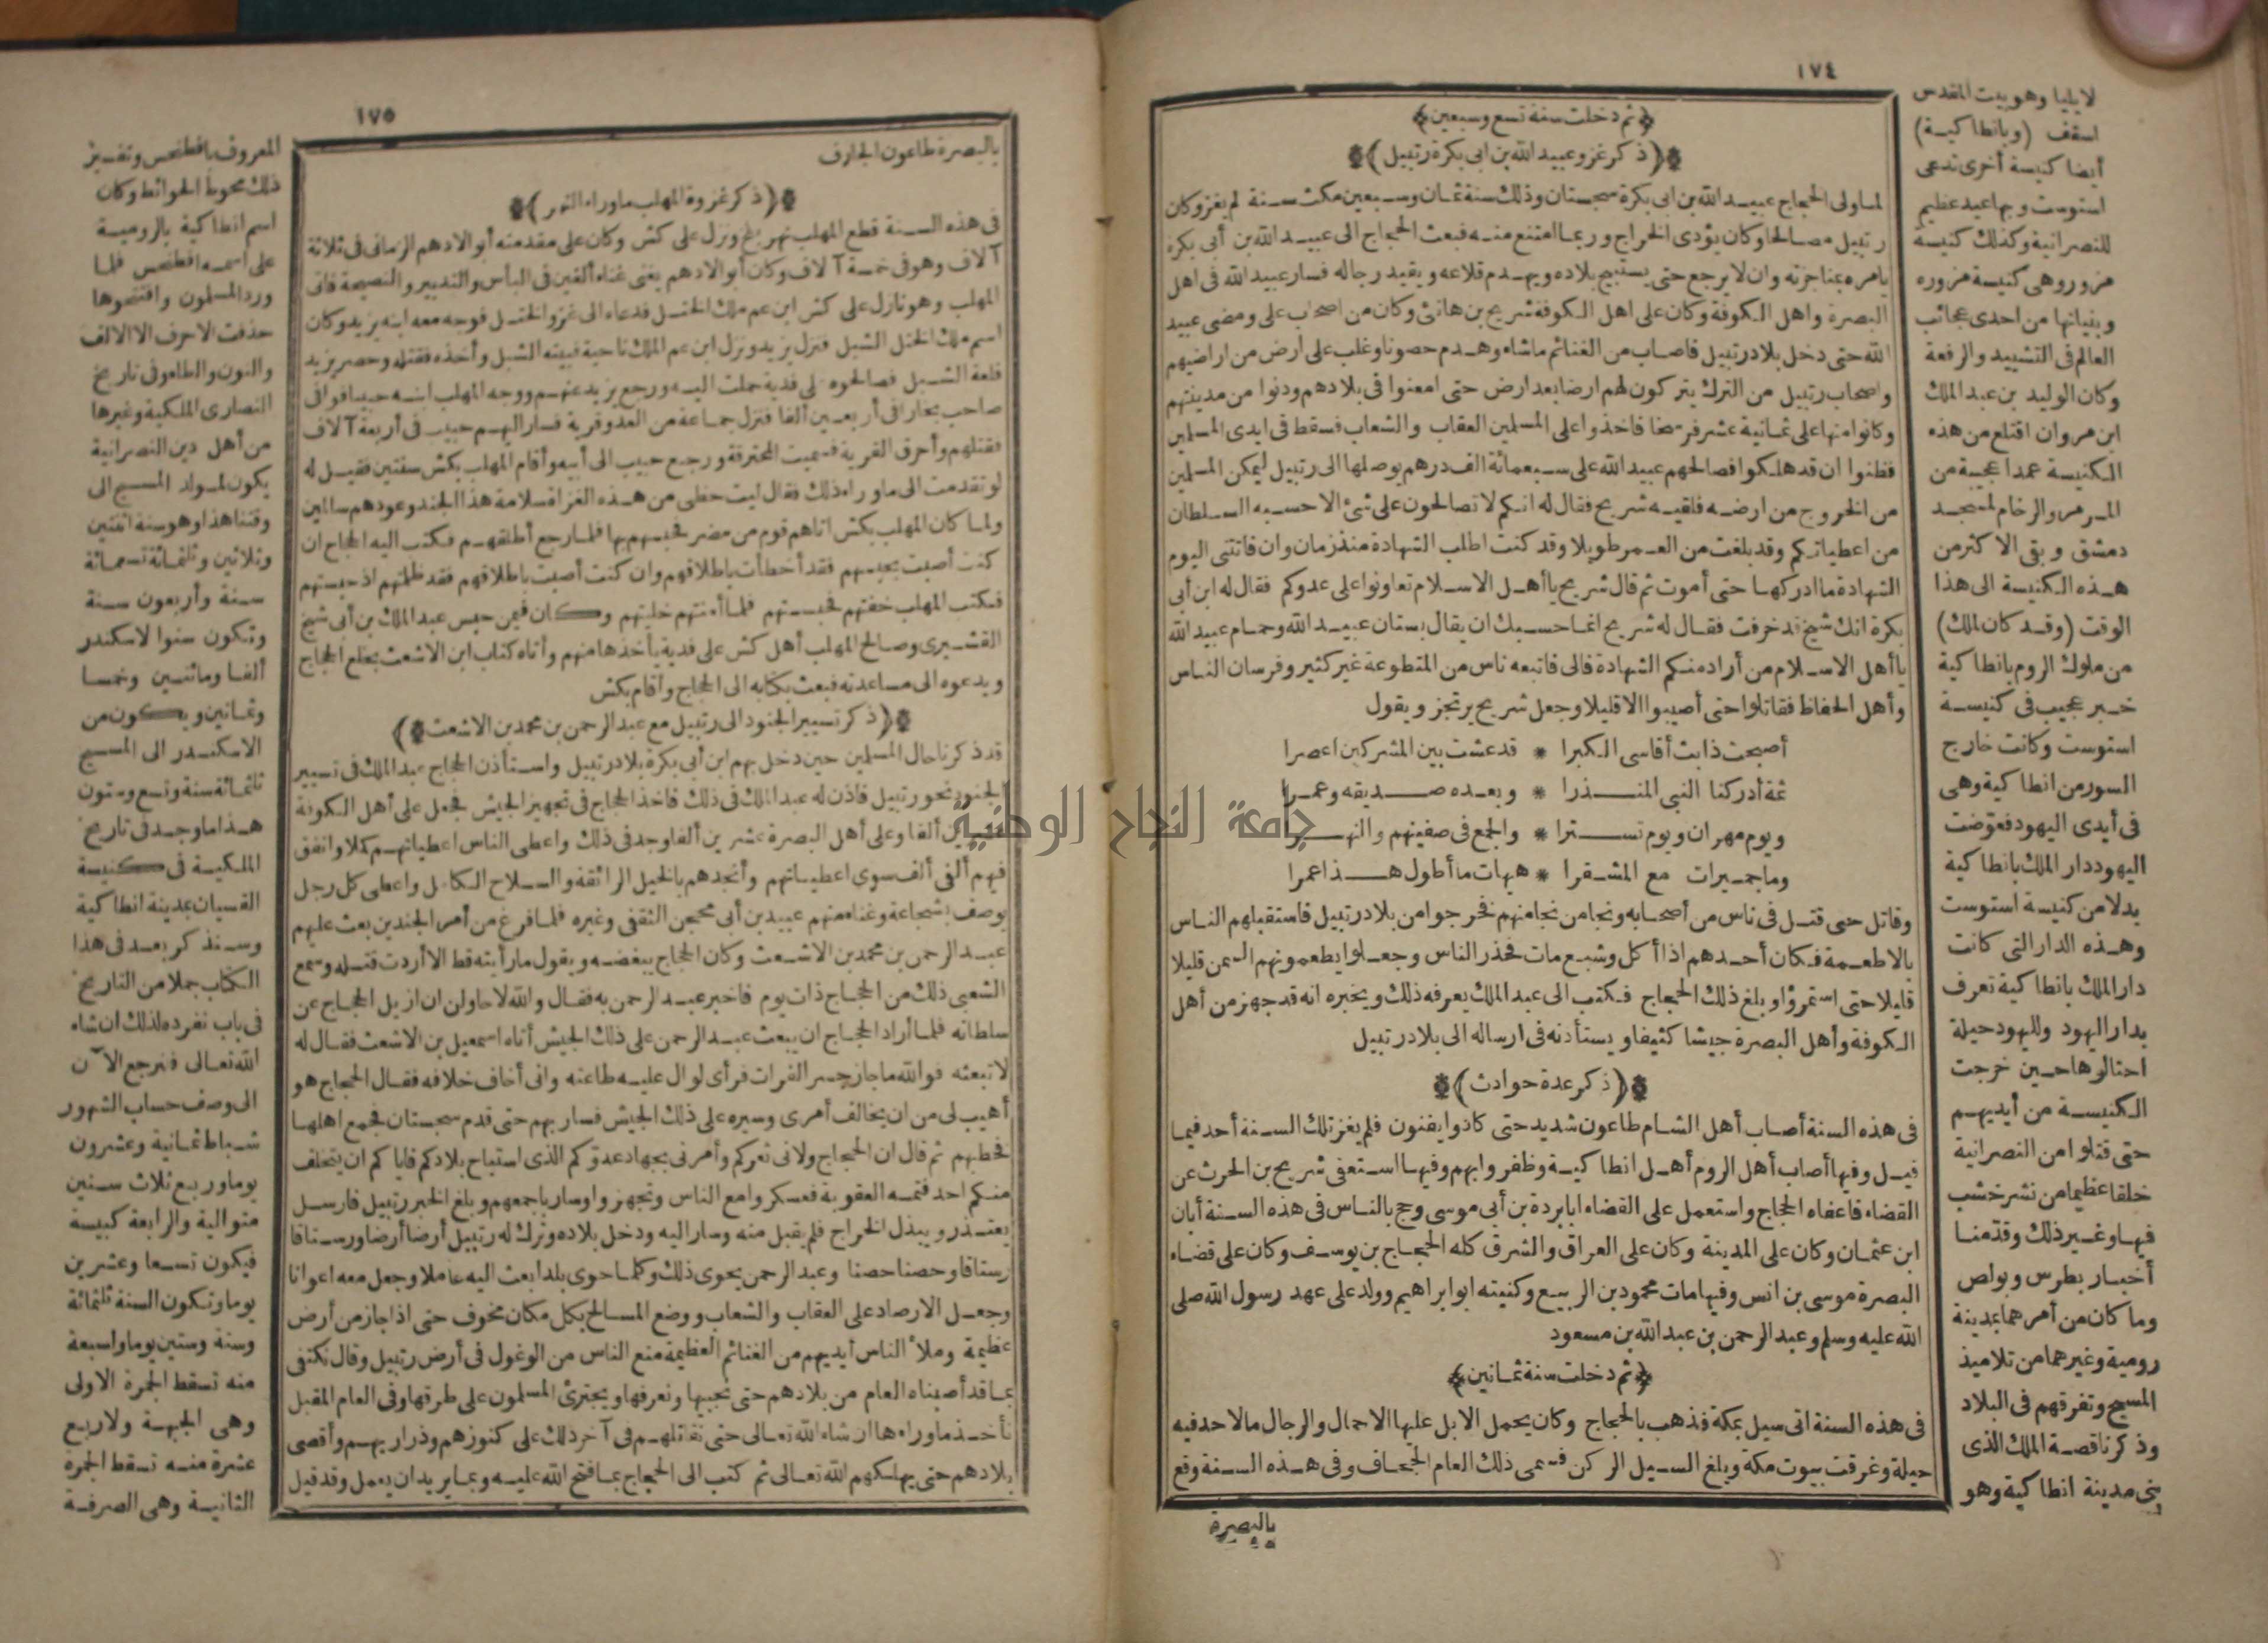 ١٧٤
﴿ثم دخلت سنة تسع وسبعين﴾
﴿(ذكر غزو عبيد الله بن ابى بكرة رتبيل)﴾
لما ولى الحجاج عبيد الله بن ابى بكرة سجستان وذلك سنة ثمان وسبعين مكث سنة لم يغز وكان
رتبيل مصالحا وكان يؤدى الخراج وربما امتنع منه فبعث الحجاج الى عبيد الله بن أبى بكرة
يأمره بمناجزته وان لا يرجع حتى يستبيح بلاده ويهدم قلاعه ويقيد رجاله فسار عبيد الله فى اهل
البصرة واهل الكوفة وكان على اهل الكوفة شريح بن هانئ وكان من اصحاب على ومضى عبيد
الله حتى دخل بلاد رتبيل فاصاب من الغنائم ماشاء وهدم حصونا وغلب على ارض من اراضيهم
واصحاب رتبيل من الترك يتركون لهم ارضا بعد ارض حتى امعنوا فى بلادهم ودنوا من مدينتهم
وكانوا منها على ثمانية عشر فرسخا فاخذوا على المسلمين العقاب والشعاب فسقط فى ايدى المسلمين
فظنوا ان قد هلكوا فصالحهم عبيد الله على سبعمائة الف درهم يوصلها الى رتبيل ليمكن المسلمين
من الخروج من ارضه فلقيه شريح فقال له انكم لا تصالحون على شئ الا حسبه السلطان
من اعطياتكم وقد بلغت من العمر طويلا وقد كنت اطلب الشهادة منذ زمان وان فاتتنى اليوم
الشهادة ما ادركها حتى أموت ثم قال شريح يا أهل الاسلام تعاونوا على عدوكم فقال له ابن أبى
بكرة انك شيخ قد خرفت فقال له شريح انما حسبك ان يقال بستان عبيد الله وحمام عبيد الله
يا أهل الاسلام من أراد منكم الشهادة فالى فاتبعه ناس من المتطوعة غير كثير وفرسان الناس
وأهل الحفاظ فقاتلوا حتى أصيبوا الا قليلا وجعل شريح يرتجز ويقول
أصبحت ذا بث أقاسى الكبرا * قد عشت بين المشركين اعصرا
ثمة أدركنا النبى المنذرا * وبعده صديقه وعمرا
ويوم مهران ويوم تسترا * والجمع فى صفينهم والنهرا
وما جميرات مع المشقرا * هيهات ما أطول هذا عمرا
وقاتل حتى قتل فى ناس من أصحابه ونجا من نجا منهم فخرجوا من بلاد رتبيل فاستقبلهم الناس
بالاطعمة فكان أحدهم اذا أكل وشبع مات فحذر الناس وجعلوا يطعمونهم السمن قليلا
قليلا حتى استمرؤا وبلغ ذلك الحجاج فكتب الى عبد الملك يعرفه ذلك ويخبره انه قد جهز من أهل
الكوفة وأهل البصرة جيشا كثيفا ويستأذنه فى ارساله الى بلاد رتبيل
﴿(ذكر عدة حوادث)﴾
فى هذه السنة أصاب أهل الشام طاعون شديد حتى كادوا يفنون فلم يغز تلك السنة أحد فيما
قيل وفيها أصاب أهل الروم أهل انطاكية وظفروا بهم وفيها استعفى شريح بن الحرث عن
القضاء فاعفاه الحجاج واستعمل على القضاء ابا بردة بن أبى موسى وحج بالناس فى هذه السنة أبان
ابن عثمان وكان على المدينة وكان على العراق والشرق كله الحجاج بن يوسف وكان على قضاء
البصرة موسى بن انس وفيها مات محمود بن الربيع وكنيته ابو ابراهيم وولد على عهد رسول الله صلى
الله عليه وسلم وعبد الرحمن بن عبد الله بن مسعود
﴿ثم دخلت سنة ثمانين﴾
فى هذه السنة اتى سيل بمكة فذهب بالحجاج وكان يحمل الابل عليها الاحمال والرجال ما لاحد فيه
حيلة وغرقت بيوت مكة وبلغ السيل الركن فسمى ذلك العام الجحاف وفى هذه السنة وقع
بالبصرة
لايليا وهو بيت المقدس
اسقف (وبانطاكية)
أيضا كنيسة أخرى تدعى
استوست وبها عيد عظيم
للنصرانية وكذلك كنيسة
مزور وهى كنيسة مزوره
وبنيانها من احدى عجائب
العالم فى التشييد والرفعة
وكان الوليد بن عبد الملك
ابن مروان اقتلع من هذه
الكنيسة عمدا عجيبة من
المرمر والرخام لمسجد
دمشق وبقى الاكثر من
هذه الكنيسة الى هذا
الوقت (وقد كان لملك)
من ملوك الروم بانطاكية
خبر عجيب فى كنيسة
استوست وكانت خارج
السور من انطاكية وهى
فى أيدى اليهود فعوّضت
اليهود دار الملك بانطاكية
بدلا من كنيسة استوست
وهذه الدار التى كانت
دار الملك بانطاكية تعرف
بدار اليهود ولليهود حيلة
احتالوها حين خرجت
الكنيسة من أيديهم
حتى قتلوا من النصرانية
خلقا عظيما من نشر خشب
فيها وغير ذلك وقدّمنا
أخبار بطرس وبولص
وما كان من أمرهما بمدينة
رومية وغيرهما من تلاميذ
المسيح وتفرقهم فى البلاد
وذكرنا قصة الملك الذى
بنى مدينة انطاكية وهو
١٧٥
بالبصرة طاعون الجارف
﴿(ذكر غزوة المهلب ما وراء النهر)﴾
فى هذه السنة قطع المهلب نهر بلخ ونزل على كش وكان على مقدمته أبو الادهم الزمانى فى ثلاثة
آلاف وهو فى خمسة آلاف وكان أبو الادهم يغنى غناء ألفين فى البأس والتدبير والنصيحة فاتى
المهلب وهو نازل على كش ابن عم ملك الختل فدعاه الى غزو الختل فوجه معه ابنه يزيد وكان
اسم ملك الختل الشبل فنزل يزيد ونزل ابن عم الملك ناحية فبيته الشبل وأخذه فقتله وحصر يزيد
قلعة الشبل فصالحوه على فدية حملت اليه ورجع يزيد عنهم ووجه المهلب ابنه حبيبا فوافى
صاحب بخارا فى أربعين ألفا فنزل جماعة من العدو قرية فسار اليهم حبيب فى أربعة آلاف
فقتلهم وأحرق القرية فسميت المحترقة ورجع حبيب الى أبيه وأقام المهلب بكش سنتين فقيل له
لو تقدمت الى ما وراء ذلك فقال ليت حظى من هذه الغزاة سلامة هذا الجند وعودهم سالمين
ولما كان المهلب بكش اتاهم قوم من مضر فحبسهم بها فلما رجع أطلقهم فكتب اليه الحجاج ان
كنت أصبت بحبسهم فقد أخطأت باطلاقهم وان كنت أصبت باطلاقهم فقد ظلمتهم اذ حبستهم
فكتب المهلب خفتهم فحبستهم فلما أمنتهم خليتهم وكان فيمن حبس عبد الملك بن أبى شيخ
القشيرى وصالح المهلب أهل كش على فدية يأخذها منهم وأتاه كتاب ابن الاشعث بخلع الحجاج
ويدعوه الى مساعدته فبعث بكتابه الى الحجاج وأقام بكش
﴿(ذكر تسيير الجنود الى رتبيل مع عبد الرحمن بن محمد بن الاشعث)﴾
قد ذكرنا حال المسلمين حين دخل بهم ابن أبى بكرة بلاد رتبيل واستأذن الحجاج عبد الملك فى تسيير
الجنود نحو رتبيل فاذن له عبد الملك فى ذلك فاخذ الحجاج فى تجهيز الجيش فجعل على أهل الكوفة
عشرين ألفا وعلى أهل البصرة عشرين ألفا وجد فى ذلك واعطى الناس اعطياتهم كملا وانفق
فيهم ألفى ألف سوى اعطياتهم وأنجدهم بالخيل الرائقة والسلاح الكامل واعطى كل رجل
يوصف بشجاعة وغناء منهم عبيد بن أبى محجن الثقفى وغيره فلما فرغ من أمر الجندين بعث عليهم
عبد الرحمن بن محمد بن الاشعث وكان الحجاج يبغضه ويقول ما رأيته قط الا أردت قتله وسمع
الشعبى ذلك من الحجاج ذات يوم فاخبر عبد الرحمن به فقال والله لاحاولن ان ازيل الحجاج عن
سلطانه فلما أراد الحجاج ان يبعث عبد الرحمن على ذلك الجيش أتاه اسمعيل بن الاشعث فقال له
لا تبعثه فوالله ما جاز جسر الفرات فرأى لوال عليه طاعته وانى أخاف خلافه فقال الحجاج هو
أهيب لى من ان يخالف أمرى وسيره على ذلك الجيش فسار بهم حتى قدم سجستان فجمع اهلها
فخطبهم ثم قال ان الحجاج ولانى ثغركم وأمرنى بجهاد عدوّكم الذى استباح بلادكم فاياكم ان يتخلف
منكم احد فتمسه العقوبة فعسكروا مع الناس وتجهزوا وسار باجمعهم وبلغ الخبر رتبيل فارسل
يعتذر ويبذل الخراج فلم يقبل منه وسار اليه ودخل بلاده وترك له رتبيل أرضا أرضا ورستاقا
رستاقا وحصنا حصنا وعبد الرحمن يحوى ذلك وكلما حوى بلدا بعث اليه عاملا وجعل معه اعوانا
وجعل الارصاد على العقاب والشعاب ووضع المسالح بكل مكان مخوف حتى اذا جاز من أرض
عظيمة وملأ الناس أيديهم من الغنائم العظيمة منع الناس من الوغول فى أرض رتبيل وقال نكتفى
بما قد أصبناه العام من بلادهم حتى نجبيها ونعرفها ويجترئ المسلمون على طرقها وفى العام المقبل
نأخذ ما وراءها ان شاء الله تعالى حتى نقاتلهم فى آخر ذلك على كنوزهم وذراريهم وأقصى
بلادهم حتى يهلكهم الله تعالى ثم كتب الى الحجاج بما فتح الله عليه وبما يريد ان يعمل وقد قيل
المعروف بافطنخس وتفسير
ذلك محوط الحوائط وكان
اسم انطاكية بالرومية
على اسمه افطنخس فلما
ورد المسلمون وافتتحوها
حذفت الاحرف الا الالف
والنون والطاء وفى تاريخ
النصارى الملكية وغيرها
من أهل دين النصرانية
يكون لمولد المسيح الى
وقتنا هذا وهو سنة اثنتين
وثلاثين وثلثمائة تسعمائة
سنة وأربعون سنة
وتكون سنوا لاسكندر
ألفا ومائتين وخمسا
وثمانين ويكون من
الاسكندر الى المسيح
ثلثمائة سنة وتسع وستون
هذا ما وجد فى تاريخ
الملكية فى كنيسة
القسيان بمدينة انطاكية
وسنذكر بعد فى هذا
الكتاب جملا من التاريخ
فى باب نفرده لذلك ان شاء
الله تعالى فنرجع الآن
الى وصف حساب الشهور
شباط ثمانية وعشرون
يوما وربع ثلاث سنين
متوالية والرابعة كبيسة
فيكون تسعا وعشرين
يوما وتكون السنة ثلثمائة
وستة وستين يوما واسبعة
منه تسقط الجمرة الاولى
وهى الجبهة ولاربع
عشرة منه تسقط الجمرة
الثانية وهى الصرفة
جامعة النجاح الوطنية